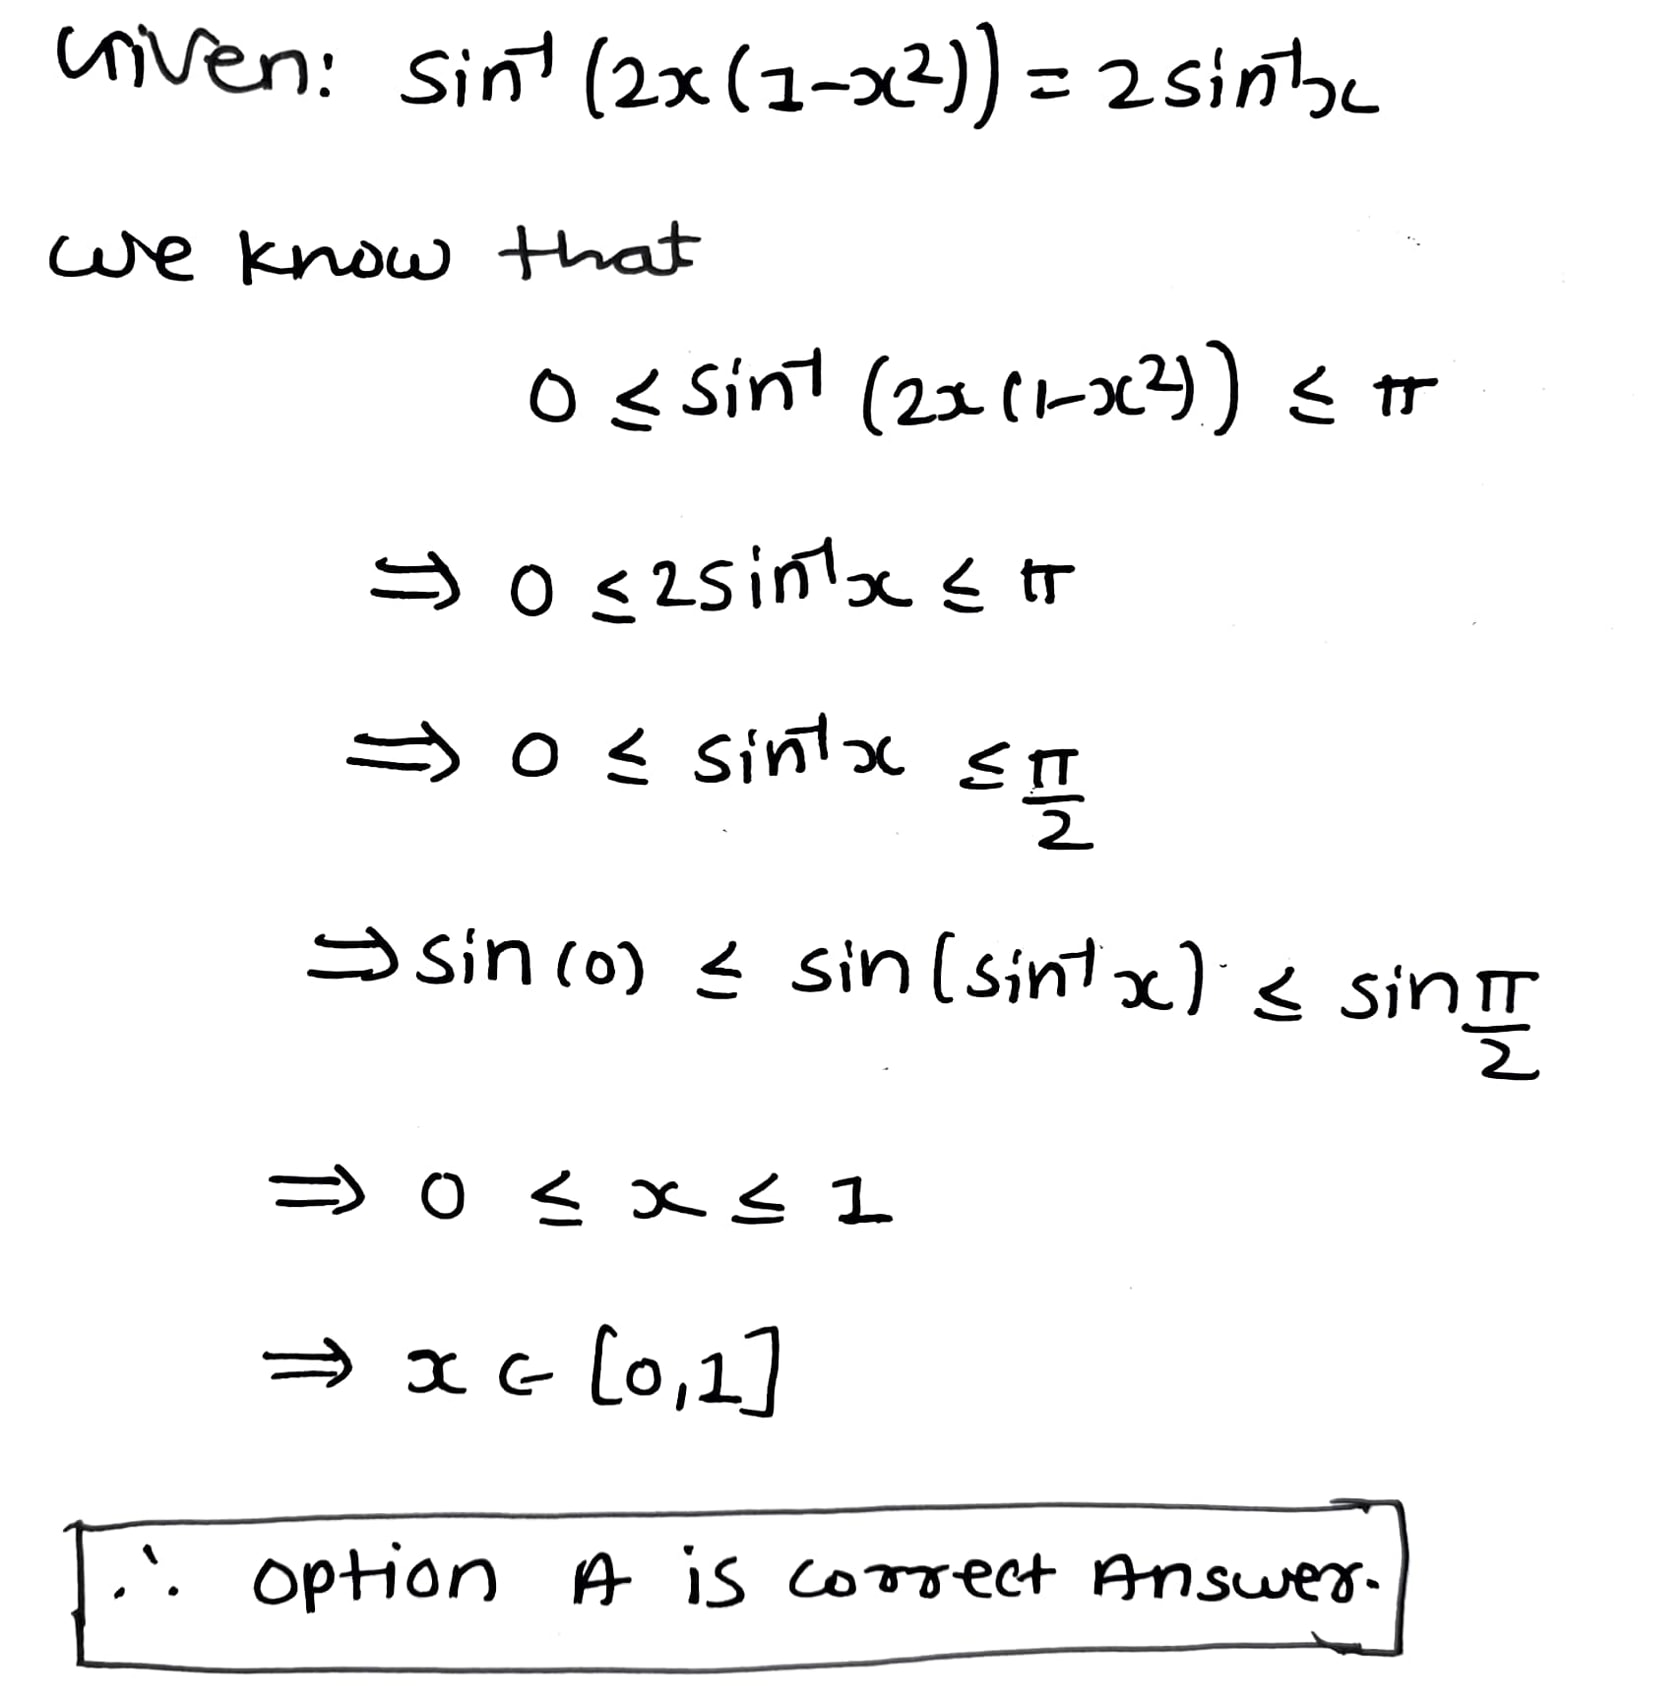 Given: sin⁻¹ (2x(1-x²)) = 2sin⁻¹x
we know that
0 ≤ sin⁻¹ (2x(1-x²)) ≤ π
⇒ 0 ≤ 2sin⁻¹x ≤ π
⇒ 0 ≤ sin⁻¹x ≤ π/2
⇒ sin(0) ≤ sin(sin⁻¹x) ≤ sin π/2
⇒ 0 ≤ x ≤ 1
⇒ x ∈ [0,1]
∴ option A is correct Answer.